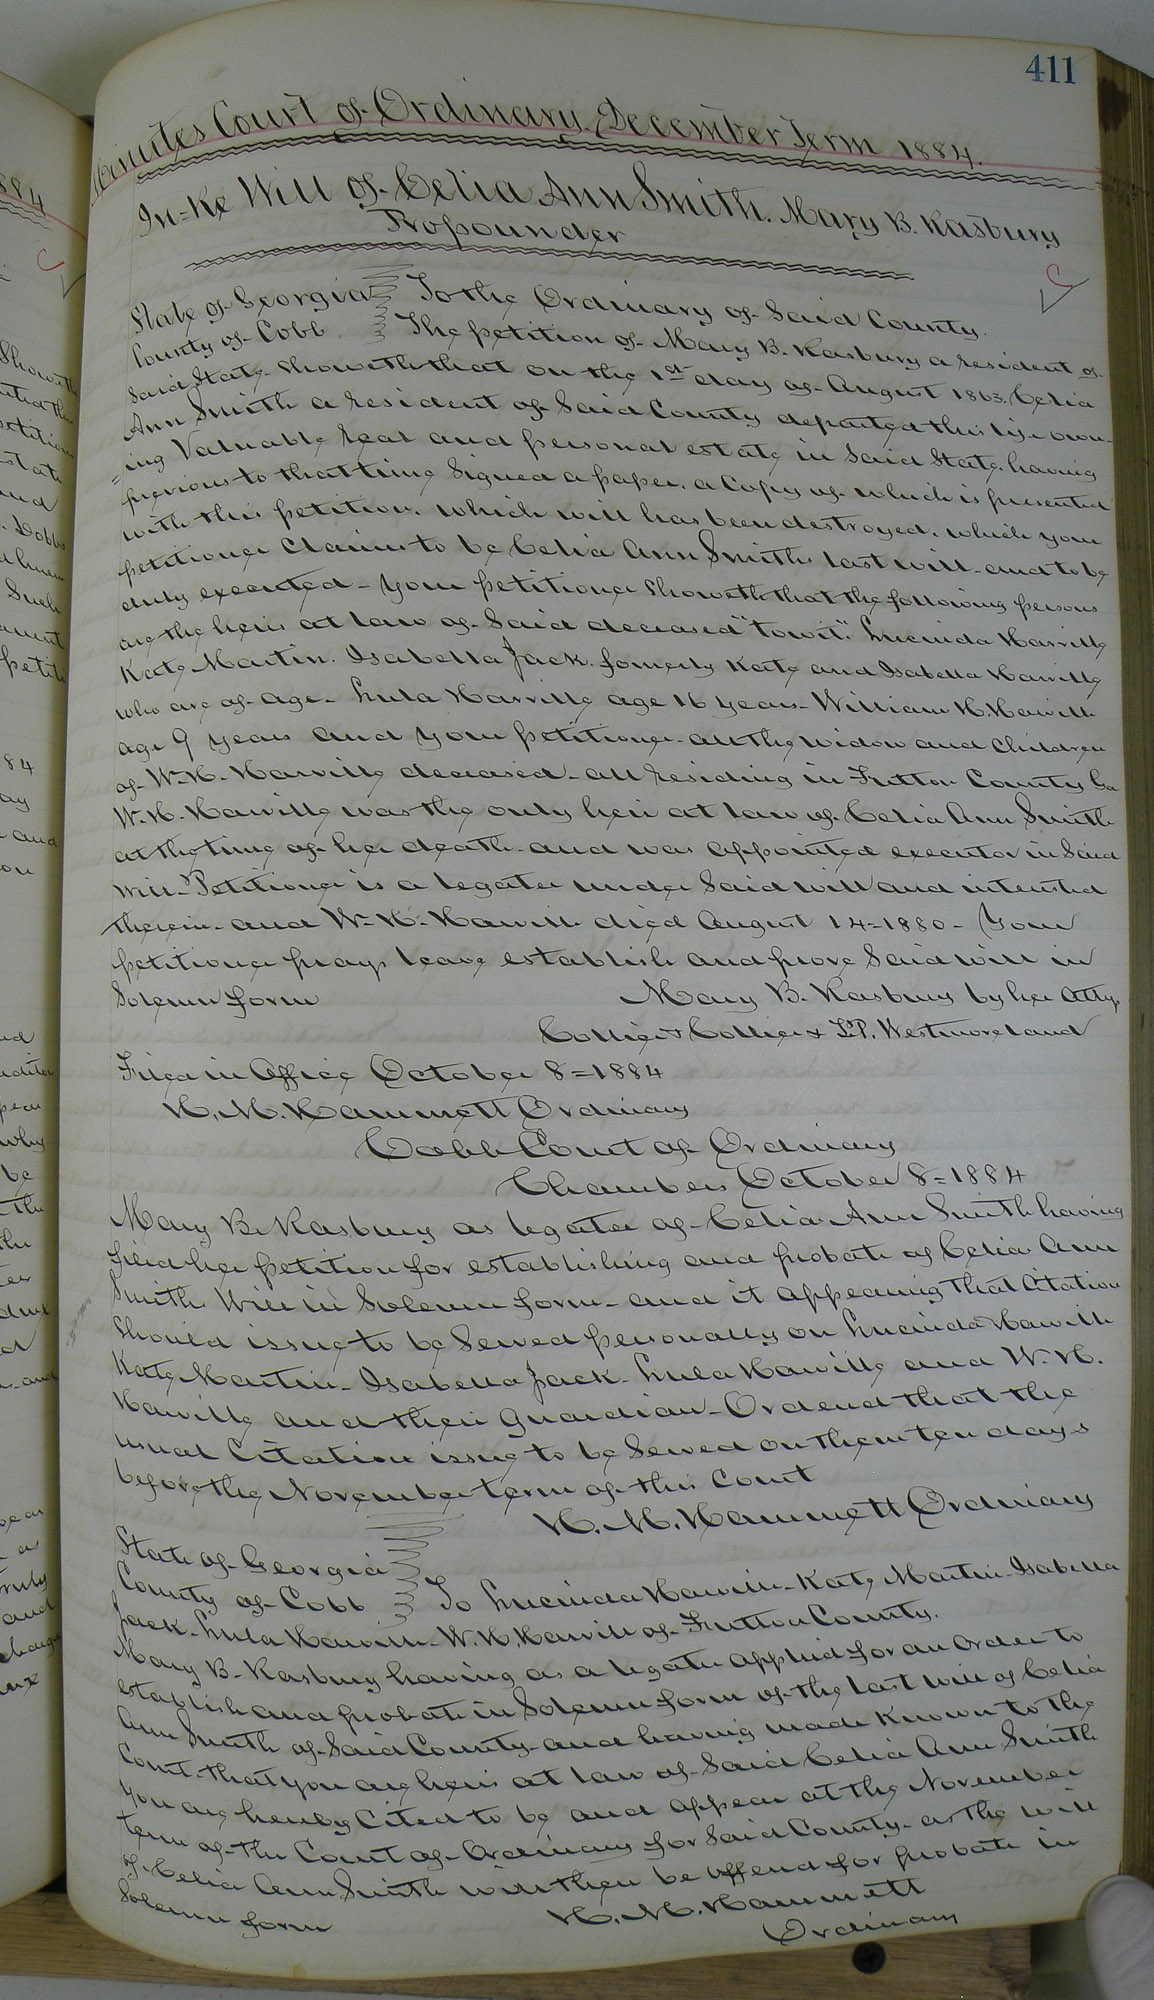 411
Minutes Court of Ordinary December Term 1884.
In=Re Will of Celia Ann Smith. Mary B. Rasbury
Propounder
State of Georgia To the Ordinary of Said County.
County of Cobb The petition of Mary B. Rasbury a resident of
Said State Showeth that on the 1st day of August 1863 Celia
Ann Smith a resident of Said County departed this life own-
ing Valuable real and personal estate in Said State, having
previous to that time Signed a paper, a Copy of which is presented
with this petition. which will has been destroyed, which your
petitioner Claims to be Celia Ann Smiths last will and to be
duly executed - Your petitioner Showeth that the following persons
are the heirs at law of Said deceased "towit". Lucinda Harville
Kate Martin. Isabella Jack formerly Kate and Isabella Harville
who are of age - Lula Harville age 16 years - William H. Harville
age 9 years and your petitioner - all the widow and Children
of W. H. Harville deceased - all residing in Fulton County Ga
W. H. Harville was the only heir at law of Celia Ann Smith
at the time of her death and was appointed executor in Said
will - Petitioner is a legatee under Said will and interested
therein - and W. H. Harville died August 14-1880 - Your
petitioner prays leave establish and prove Said will in
Solemn form Mary B. Rasbury by her Atty.
Collier & Collier & T.P. Westmoreland
Filed in Office October 8=1884
H. M. Hammett Ordinary
Cobb Court of Ordinary
Chambers October 8=1884
Mary B. Rasbury as legatee of Celia Ann Smith having
filed her petition for establishing and probate of Celia Ann
Smiths Will in Solemn form - and it appearing that Citation
Should issue to be Served personally on Lucinda Harville
Kate Martin - Isabella Jack - Lula Harville and W. H.
Harville and their guardian - Ordered that the
usual Citation issue to be Served on them ten days
before the November term of this Court
H. M. Hammett Ordinary
State of Georgia
County of Cobb To Lucinda Harville - Kate Martin - Isabella
Jack - Lula Harville - W. H. Harville of Fulton County.
Mary B. Rasbury having as a legatee applied for an Order to
establish and probate in Solemn form of the last will of Celia
Ann Smith of Said County - and having made Known to the
Court - that you are heirs at law of Said Celia Ann Smith
You are hereby Cited to be and appear at the November
term of the Court of Ordinary for Said County - as the will
of Celia Ann Smith will then be offered for probate in
Solemn form H. M. Hammett
Ordinary